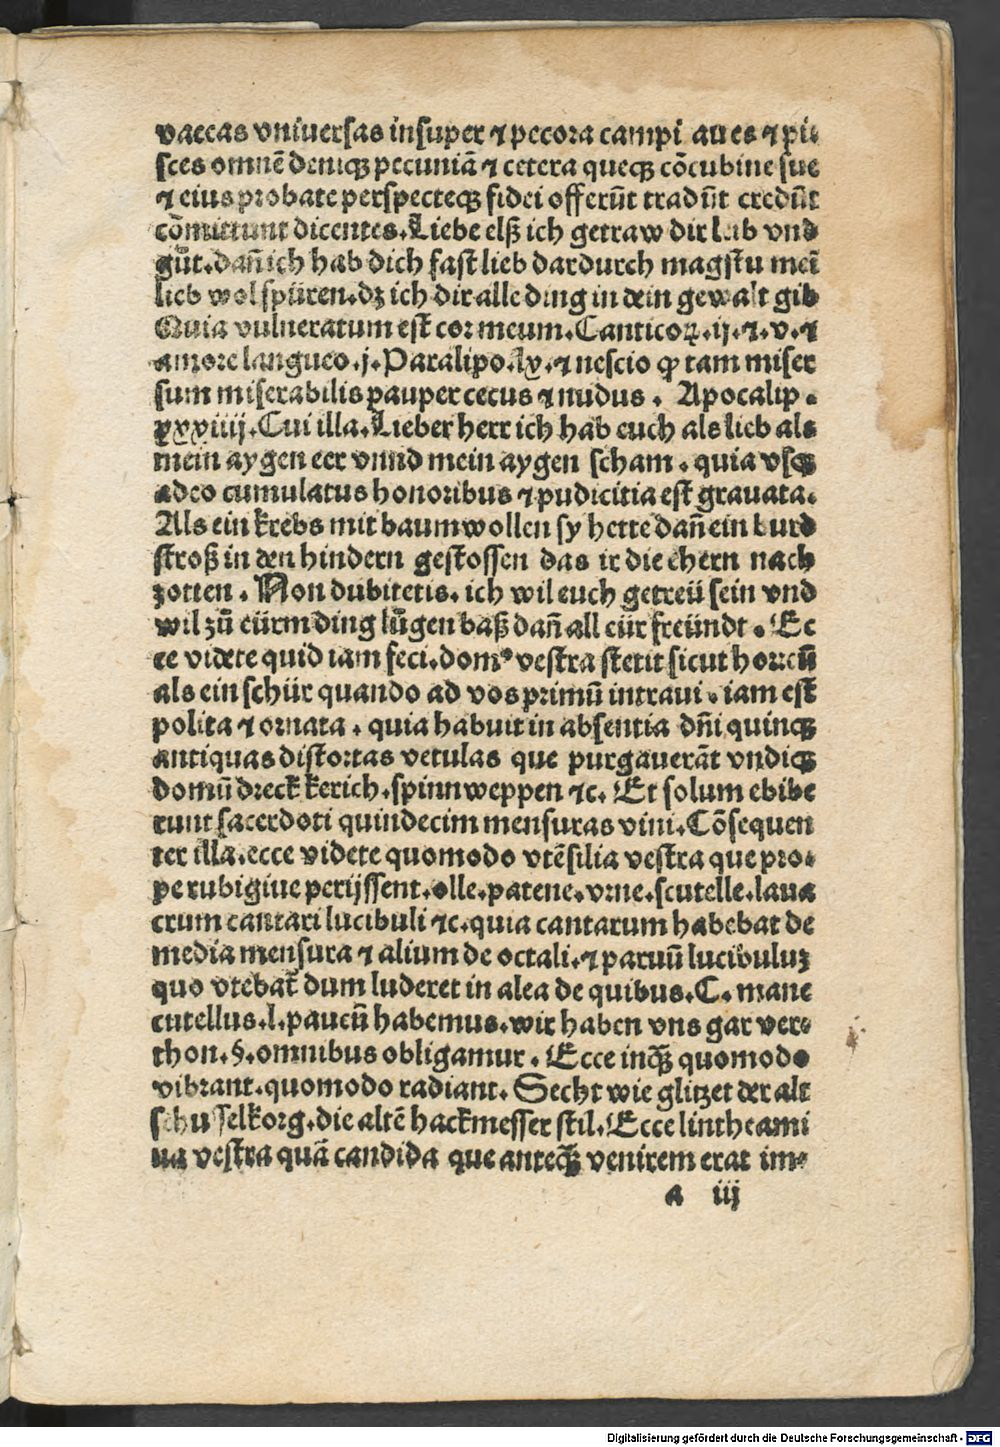 vaccas vniuersas insuper ⁊ pecora campi aues ⁊ pi⸗
sces omnē deniqꝫ pecuniā ⁊ cetera queqꝫ cōcubine sue
⁊ eius probate perspecteqꝫ fidei offerūt tradūt credūt
cōmittunt dicentes. Liebe elß ich getraw dir lib vnd
gůt. dañ ich hab dich fast lieb dardurch magstu mei
lieb wol spüren. dz ich dir alle ding in dein gewalt gib
Quia vulneratum est cor meum. Canticoꝝ. ij. ⁊. v. ⁊
amore langueo. j. Paralipo. lx. ⁊ nescio ꝙ tam miser
sum miserabilis pauper cecus ⁊ nudus. Apocalip.
xxxiiij. Cui illa. Lieber herr ich hab euch als lieb als
mein aygen eer vnnd mein aygen scham. quia vsqꝫ
adeo cumulatus honoribus ⁊ pudicitia est grauata.
Als ein krebs mit baumwollen sy hette dañ ein burd
stroß in den hindern gestossen das ir die ehern nach
zotten. Non dubitetis. ich wil euch getreü sein vnd
wil zů eürm ding lůgen baß dañ all eür freündt. Ec
ce videte quid iam feci. domꝰ vestra stetit sicut horreū
als ein schür quando ad vos primū intraui. iam est
polita ⁊ ornata. quia habuit in absentia dñi quinqꝫ
antiquas distortas vetulas que purgauerāt vndiqꝫ
domū dreck kerich. spinnweppen ⁊c. Et solum ebibe
runt sacerdoti quindecim mensuras vini. Cōsequen
ter illa. ecce videte quomodo vtēsilia vestra que pro⸗
pe rubigiue perijssent. olle. patene. vrne. scutelle. laua
crum cantari lucibuli ⁊c. quia cantarum habebat de
media mensura ⁊ alium de octali. ⁊ paruū lucibuluꝫ
quo vtebat̄ dum luderet in alea de quibus. C. mane
cutellus. l. paucū habemus. wir haben vns gar ver⸗
thon. §. omnibus obligamur. Ecce inqꝫ quomodo
vibrant. quomodo radiant. Secht wie glitzet der alt
schusselkorg. die altē hackmesser stil. Ecce lintheami
na vestra quā candida que anteqꝫ venirem erat im⸗
a iij
Digitalisierung gefördert durch die Deutsche Forschungsgemeinschaft - DFG